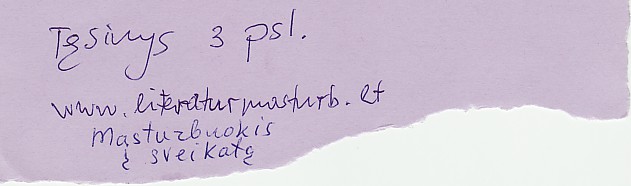 Tęsinys 3 psl.
www.literaturmasturb.lt
Masturbuokis
į sveikatą